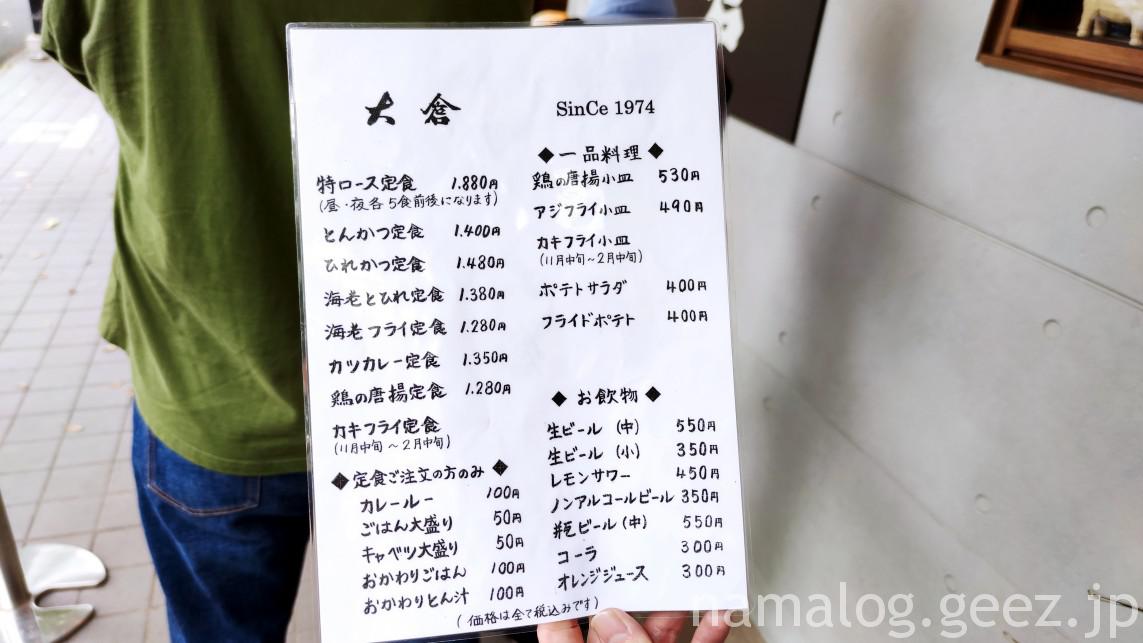 大倉
SinCe 1974
特ロース定食 1.880円
(昼・夜各5食前後になります)
とんかつ定食 1.400円
ひれかつ定食 1.480円
海老とひれ定食 1.380円
海老フライ定食 1.280円
カツカレー定食 1.350円
鶏の唐揚定食 1.280円
カキフライ定食
(11月中旬～2月中旬)
◆定食ご注文の方のみ◆
カレールー 100円
ごはん大盛り 50円
キャベツ大盛り 50円
おかわりごはん 100円
おかわりとん汁 100円
◆一品料理◆
鶏の唐揚小皿 530円
アジフライ小皿 490円
カキフライ小皿
(11月中旬～2月中旬)
ポテトサラダ 400円
フライドポテト 400円
◆お飲物◆
生ビール (中) 550円
生ビール (小) 350円
レモンサワー 450円
ノンアルコールビール 350円
瓶ビール (中) 550円
コーラ 300円
オレンジジュース 300円
(価格は全て税込みです)
namalog.geez.jp